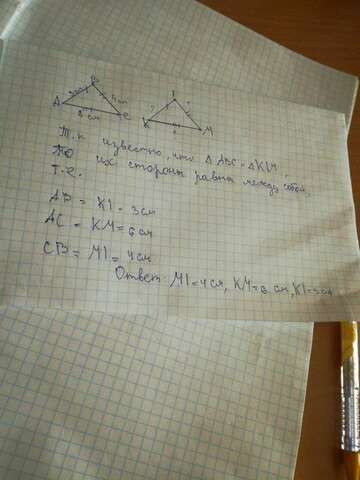 В
3см
4 см
А
6 см
С
I
?
?
К
?
М
Т.к известно, что Δ ABC = Δ KIM,
то их стороны равны между собой,
т.е.
AB = KI = 3 см
AC = KM = 6 см
CB = MI = 4 см
Ответ: MI = 4 см, KM = 6 см, KI = 3 см